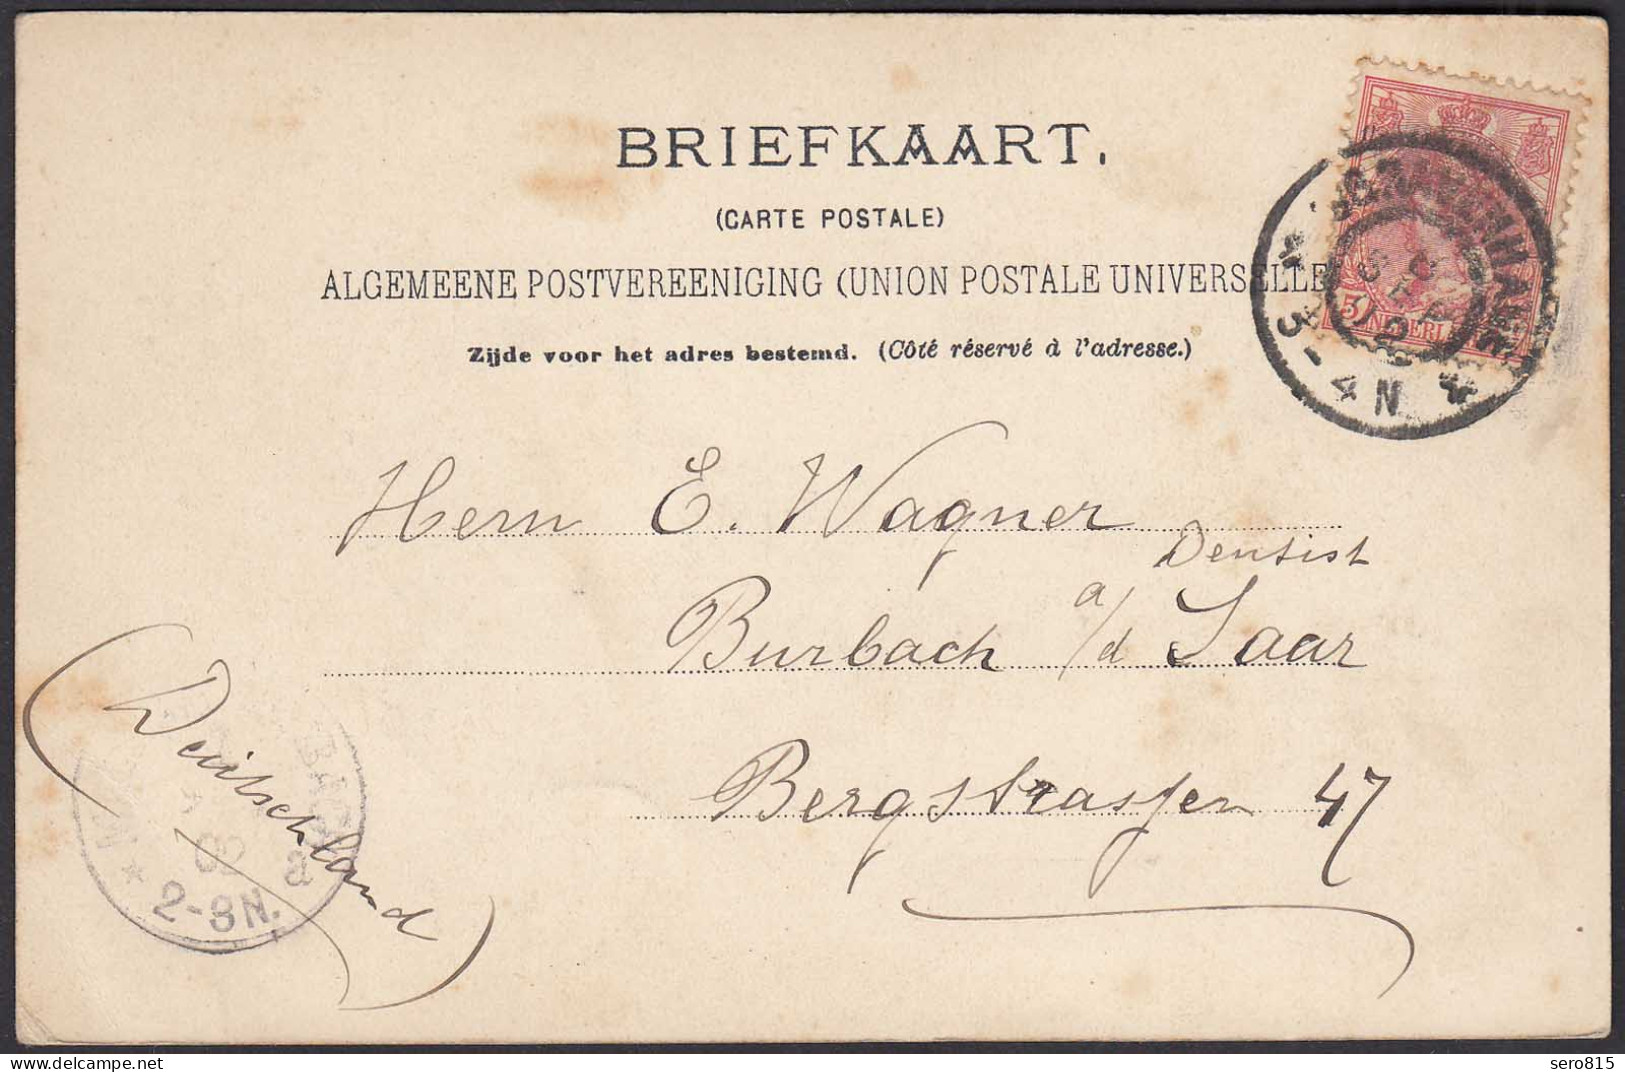 BRIEFKAART.
(CARTE POSTALE)
ALGEMEENE POSTVEREENIGING (UNION POSTALE UNIVERSELLE
Zijde voor het adres bestemd. (Côté réservé à l'adresse.)
'S GRAVENHAGE
3-4 N
5
NEDERL
Herrn E. Wagner
Dentist
Burbach a/d Saar
Bergstrassen 47
(Deutschland)
2-3 N.
a
sero815